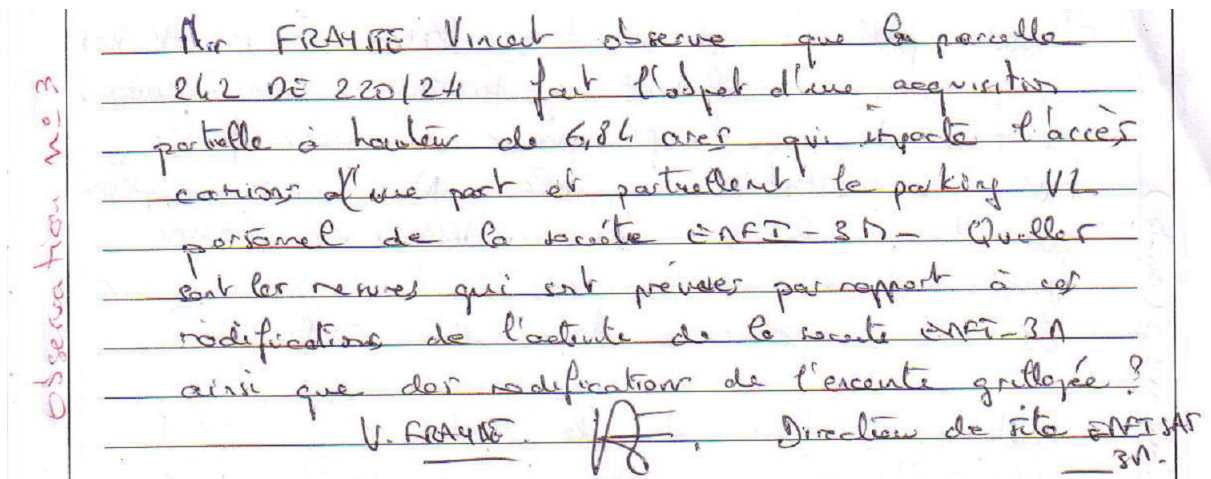 Observation n° 3
Mr FRAYSSE Vincent observe que la parcelle
242 DE 220/24 fait l'objet d'une acquisition
partielle à hauteur de 6,84 ares qui impacte l'accès
camions d'une part et partiellement le parking VL
personnel de la société - Quelles
sont les mesures qui sont prévues par rapport à ces
modifications de l'activité de la société
ainsi que des modifications de l'enceinte grillagée ?
V. Direction de site